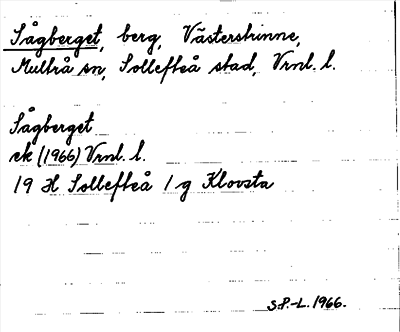 Sågberget, berg, Västerstrinne,
Multrå sn, Sollefteå stad, Vrnl. l.
Sågberget
ek (1966) Vrnl. l.
19 H Sollefteå 1 g Klovsta
S.P.-L. 1966.